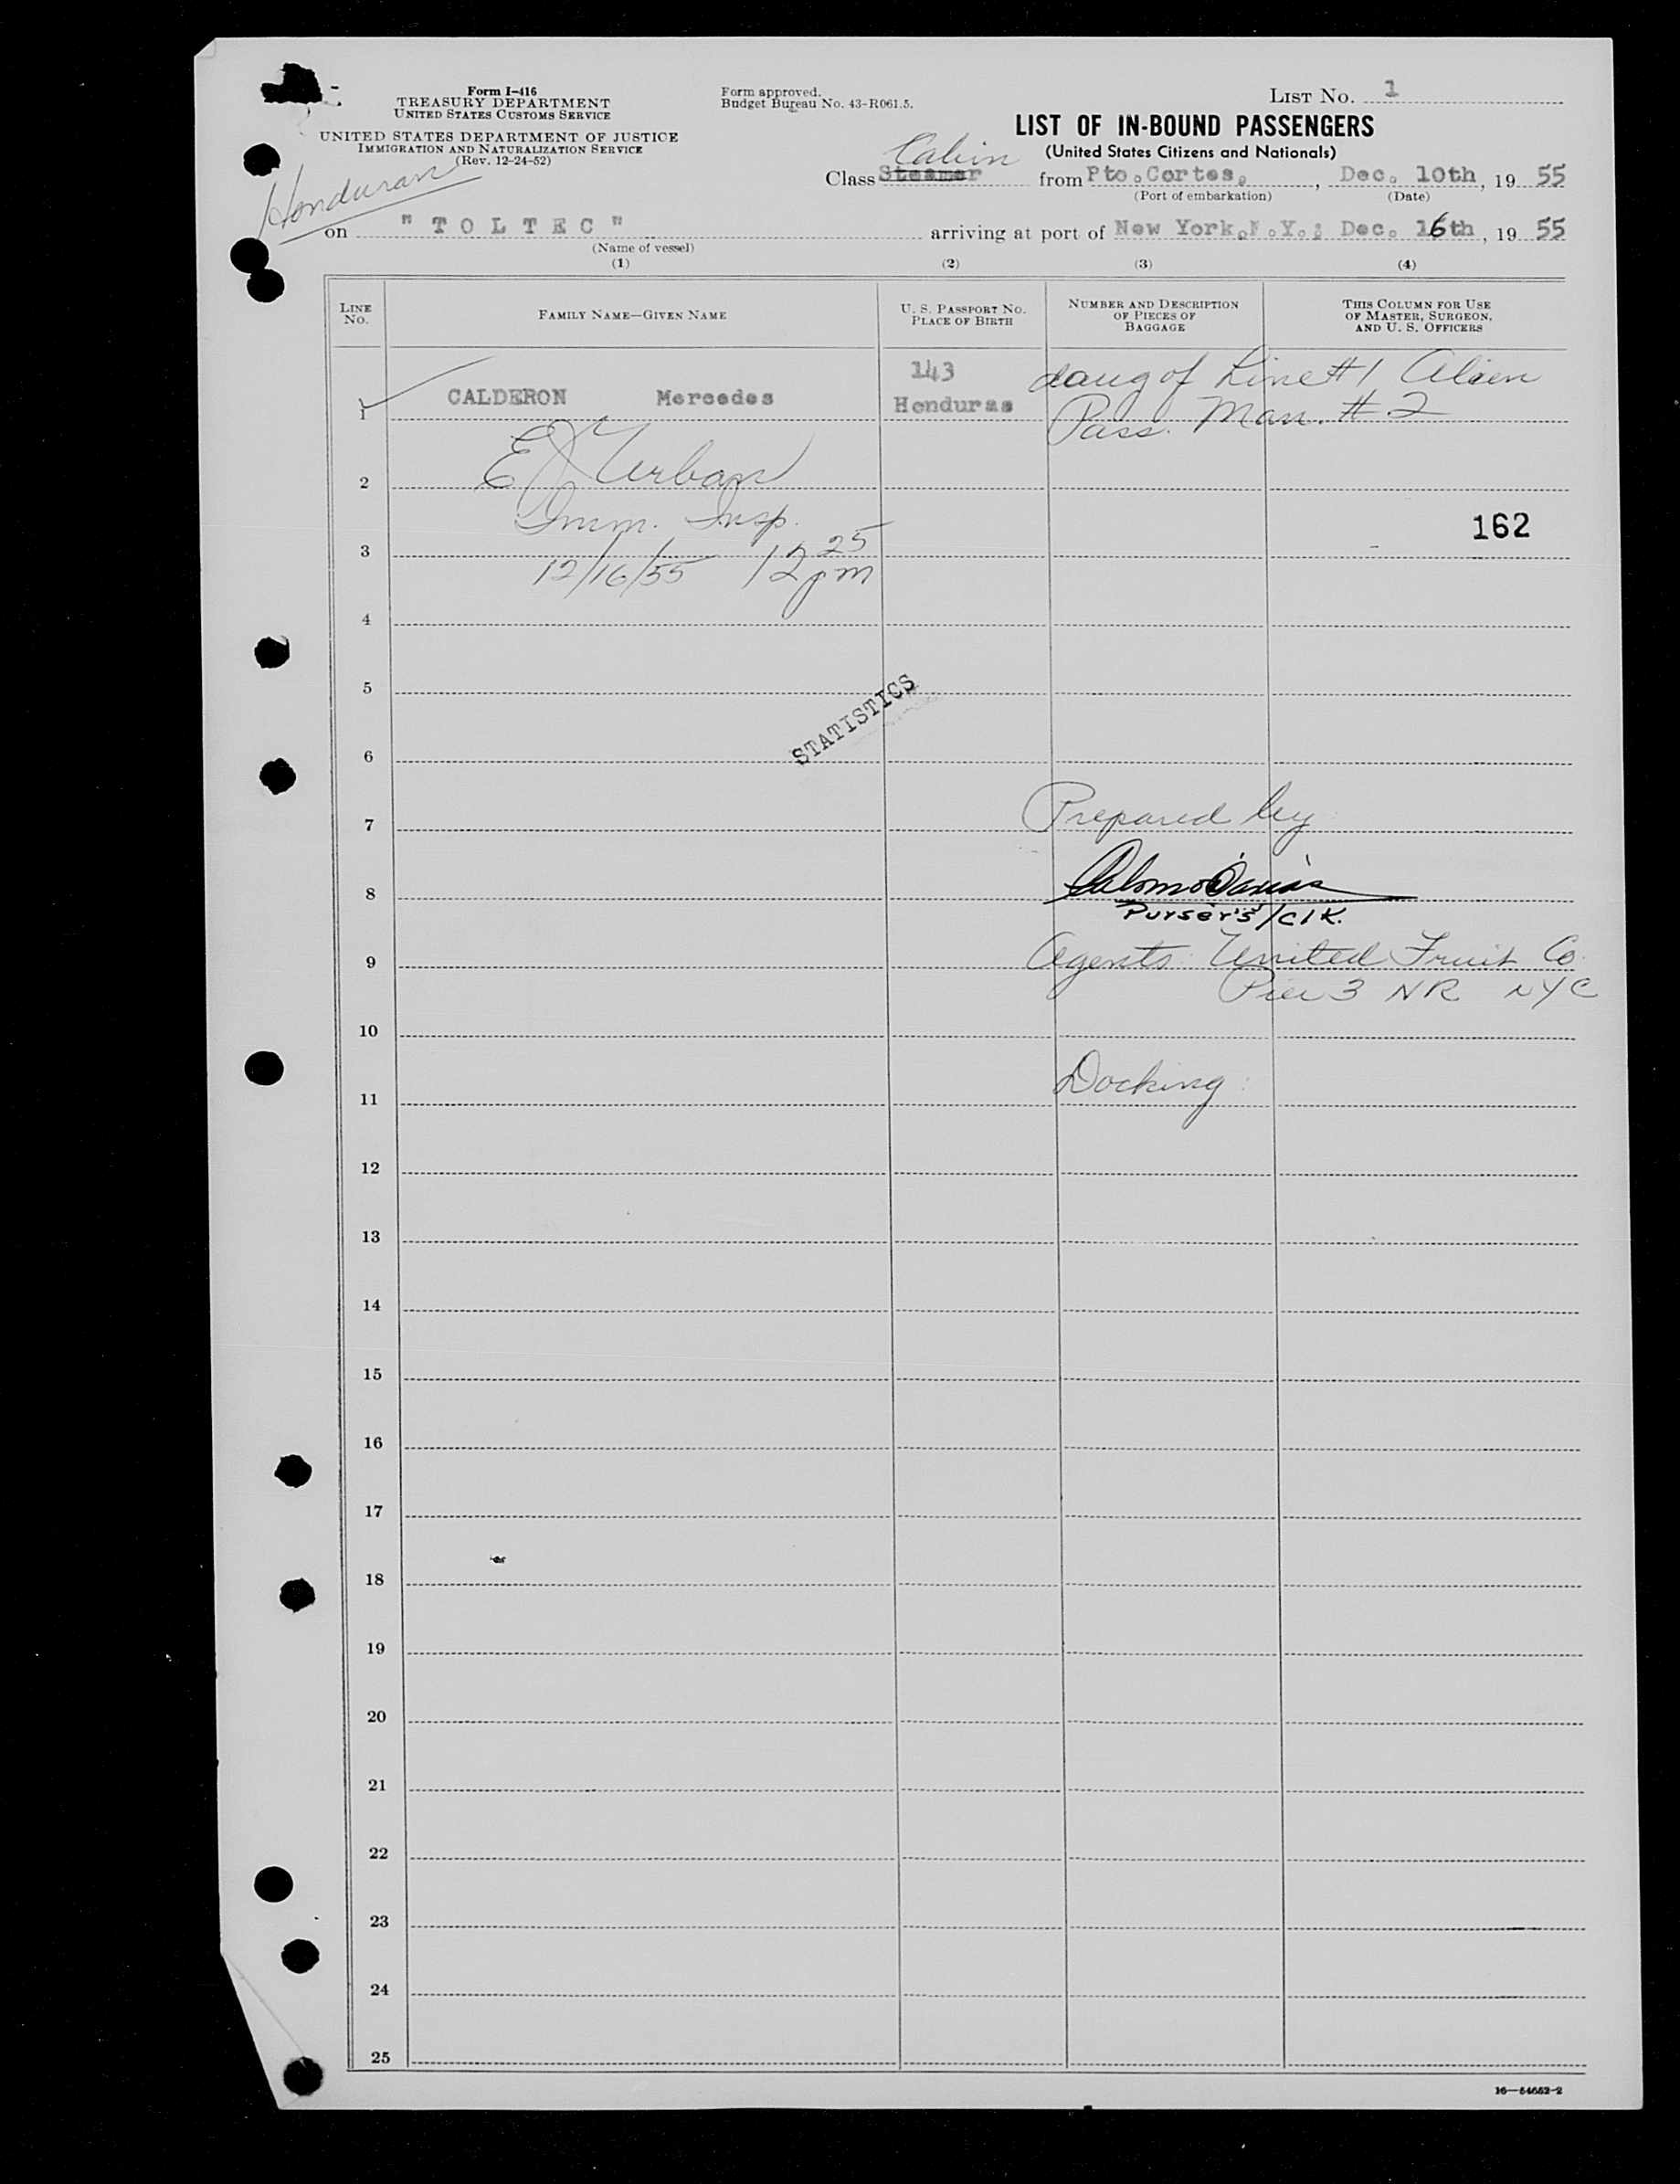 Form I-416
TREASURY DEPARTMENT
UNITED STATES CUSTOMS SERVICE
UNITED STATES DEPARTMENT OF JUSTICE
IMMIGRATION AND NATURALIZATION SERVICE
(Rev. 12-24-52)
Form approved.
Budget Bureau No. 43-R061.5.
LIST No. 1
LIST OF IN-BOUND PASSENGERS
(United States Citizens and Nationals)
Honduran
Cabin
Class Steamer from Pto.Cortes, , Dec. 10th, 19 55
(Port of embarkation) (Date)
on " T O L T E C " arriving at port of New York,N.Y.; Dec. 16th, 19 55
(Name of vessel)
(1) (2) (3) (4)
LINE No. FAMILY NAME—GIVEN NAME U. S. PASSPORT No. PLACE OF BIRTH NUMBER AND DESCRIPTION OF PIECES OF BAGGAGE THIS COLUMN FOR USE OF MASTER, SURGEON, AND U. S. OFFICERS
1 CALDERON Mercedes 143 Honduras daug of Line #1 Alien
Pass. Man. # 2
E Urban
2
Imm. Insp.
162
3
12/16/55 12 25 pm
4
5
STATISTICS
6
Prepared by
7
8
Purser's/Clk.
Agents: United Fruit Co.
9
Pier 3 NR NYC
10
Docking:
11
12
13
14
15
16
17
18
19
20
21
22
23
24
25
16—54652-2